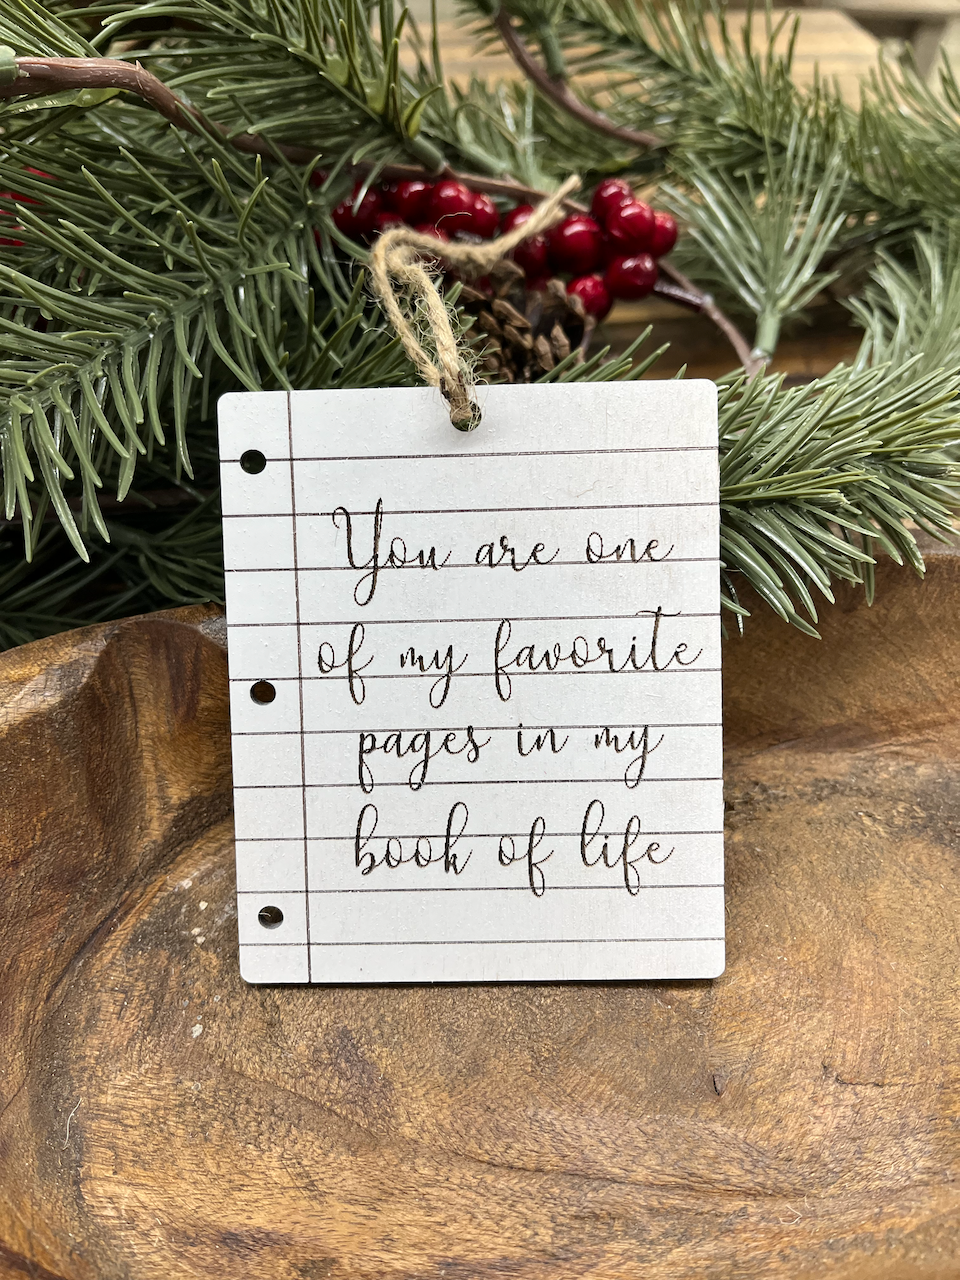 You are one
of my favorite
pages in my
book of life